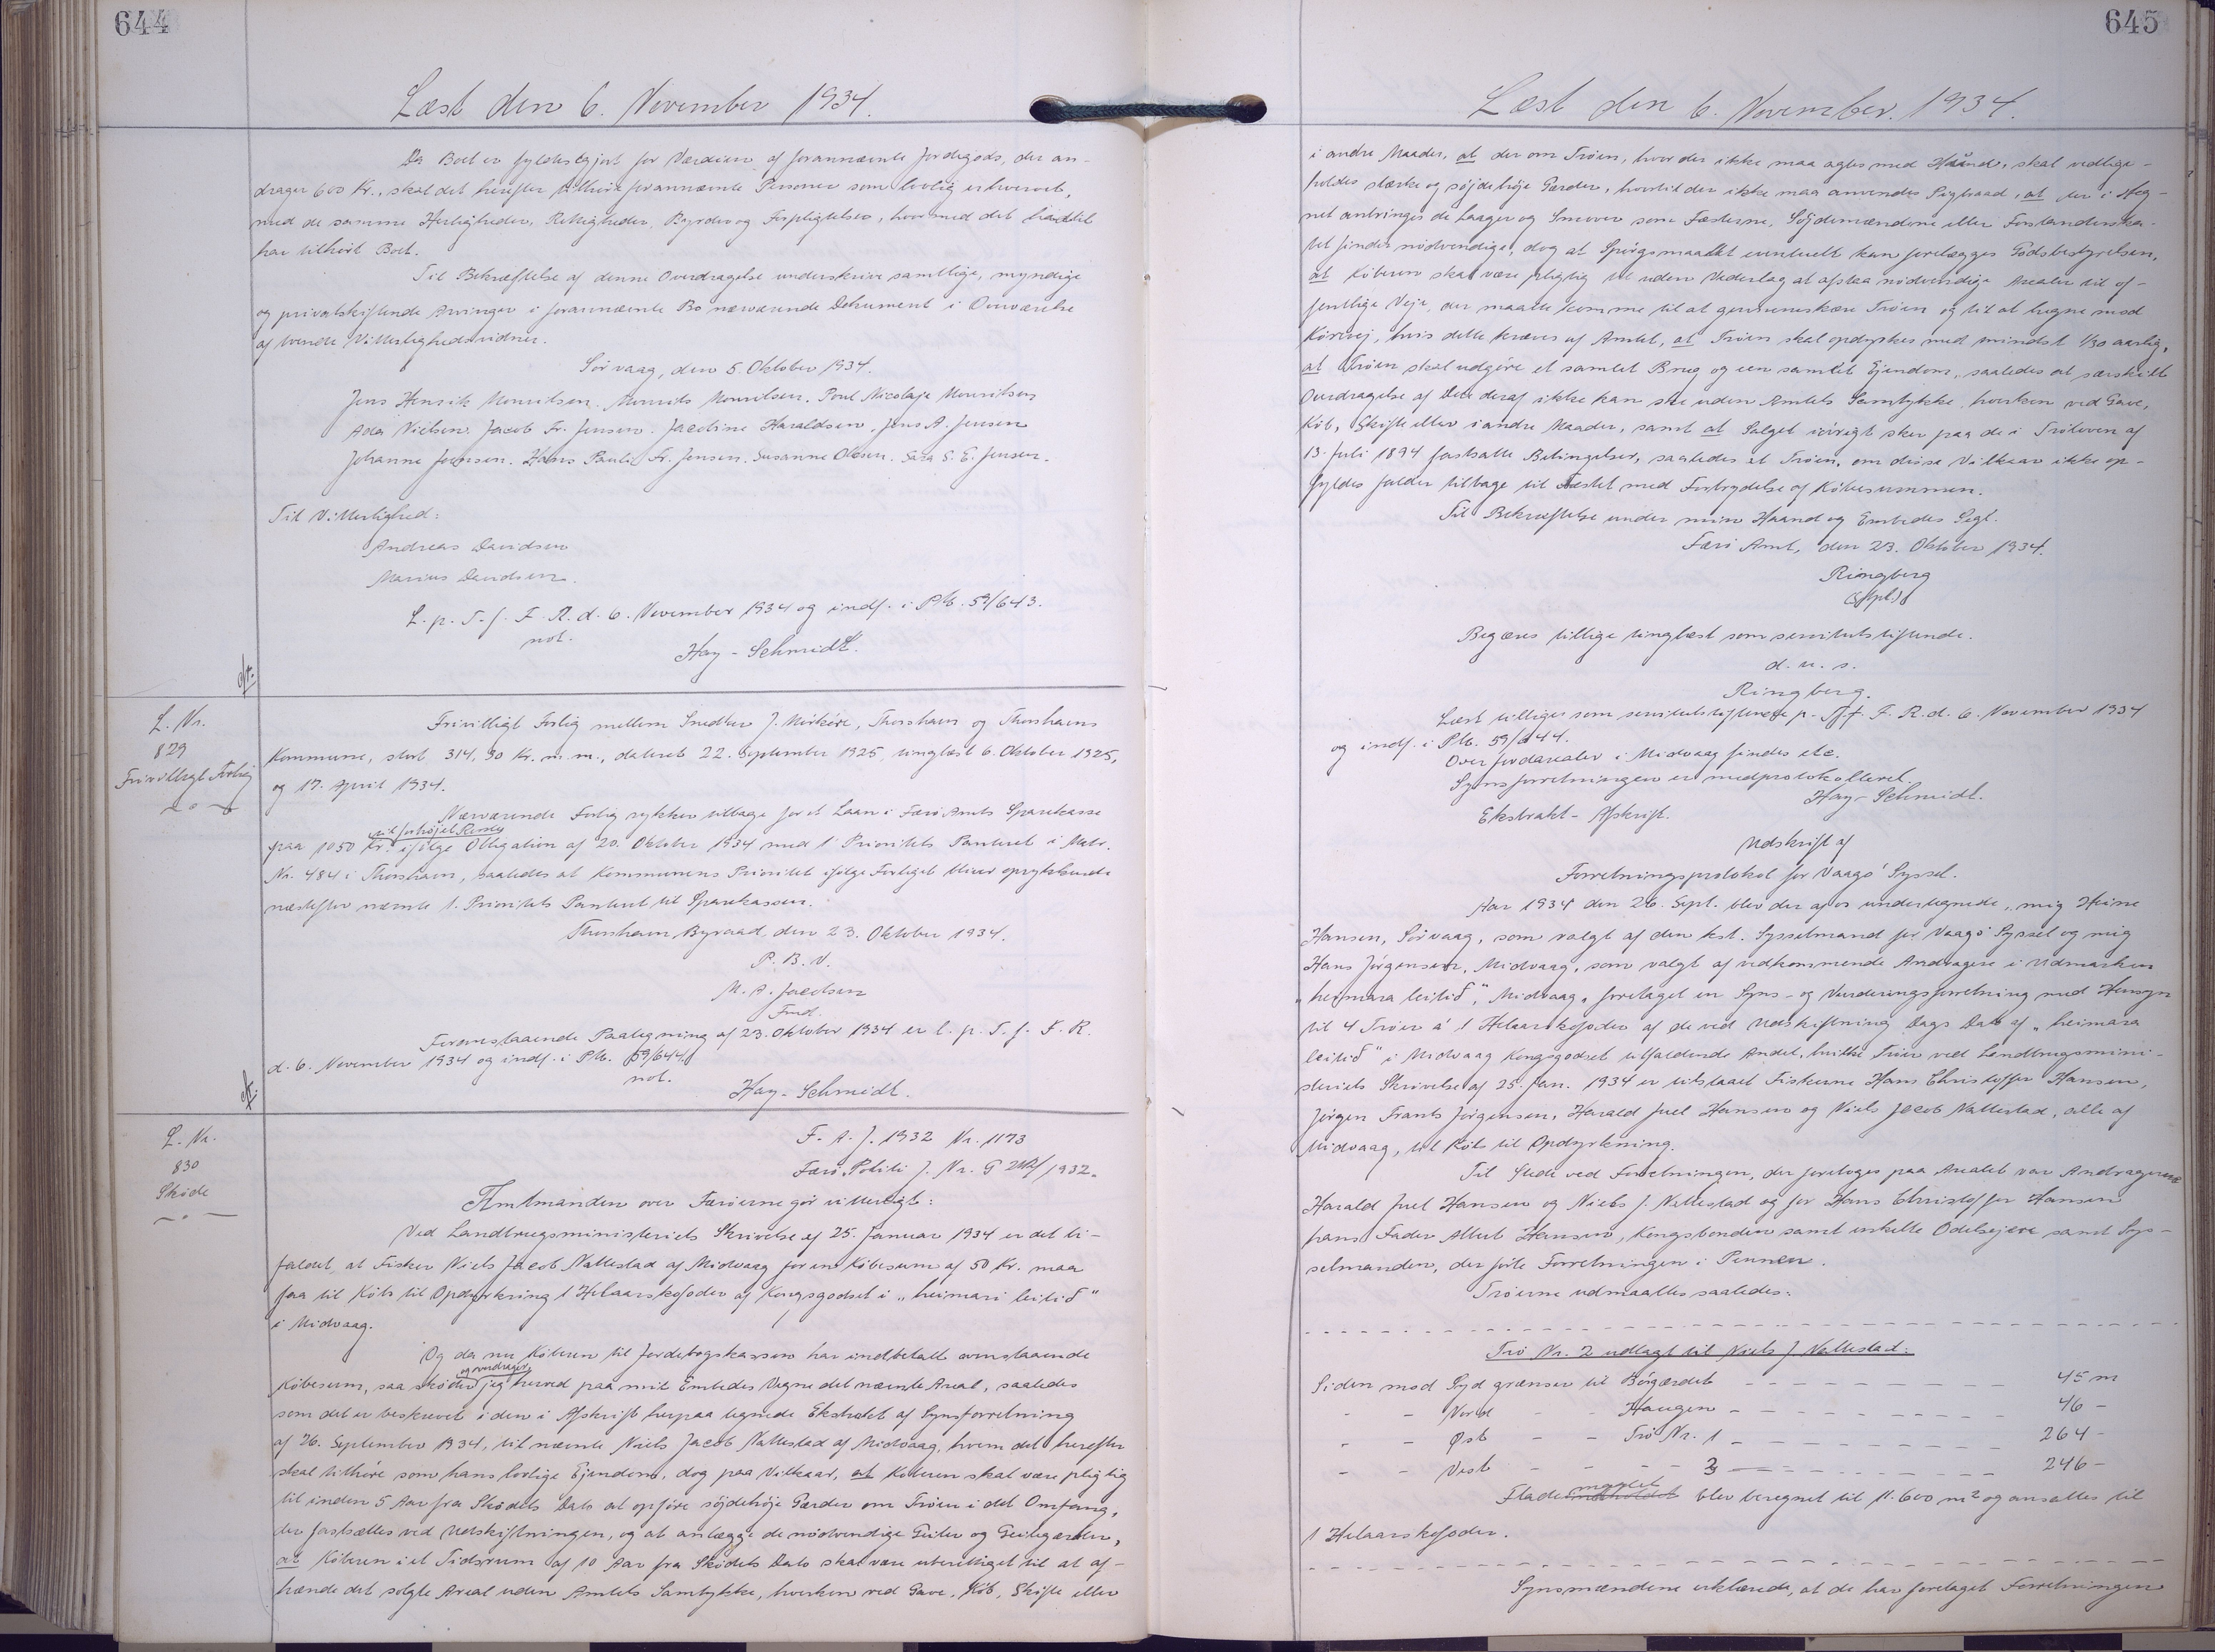 644
Læst den 6. November 1934.
Da Boet er fyldestgjort for Værdien af forannævnte Jordegods, der an-
drager 600 Kr., skal det herefter tilhøre forannævnte Personer som lovlig erhvervet,
med de samme Herligheder, Rettigheder, Byrder og Forpligtelser, hvormed det hidtil
har tilhørt Boet.
Til Bekræftelse af denne Overdragelse underskriver samtlige, myndige
og privatskiftende Arvinger i forannævnte Bo nærværende Dokument i Overværelse
af tvende Vitterlighedsvidner.
Sörvaag, den 5. Oktober 1934.
Jens Henrik Mouritsen. Mourits Mouritsen. Poul Nicolaje Mouritsen
Ada Nielsen. Jacob Fr. Jensen. Jacobine Haraldsen. Jens A. Jensen
Johanne Joensen. Hans Pauli Fr. Jensen. Susanne Olsen. Sara S. E. Jensen.
Til Vitterlighed:
Andreas Davidsen
Marius Davidsen.
L. p. T. f. F. R. d. 6. November 1934 og indf. i Ptb. 59/643.
not.
Hay-Schmidt.
L. Nr.
829
Frivilligt Forlig
Frivilligt Forlig mellem Snedker J. Mörköre, Thorshavn og Thorshavns
Kommune, stort 314,90 Kr. m.m., dateret 22. September 1925, tinglæst 6. Oktober 1925,
og 17. April 1934.
Nærværende Forlig rykker tilbage for et Laan i Færö Amts Sparekasse
til forhöjet Rente
paa 1050 Kr. ifölge Obligation af 20. Oktober 1934 med 1' Prioritets Panteret i Matr.
Nr. 484 i Thorshavn, saaledes at Kommunens Prioritet ifölge Forliget bliver oprykkende
næstefter nævnte 1. Prioritets Panteret til Sparekassen.
Thorshavn Byraad, den 23. Oktober 1934.
P. B. V.
M. A. Jacobsen
Fmd.
Foranstaaende Paategning af 23. Oktober 1934 er l. p. T. f. F. R.
d. 6. November 1934 og indf. i Ptb. 59/644.
not.
Hay-Schmidt.
L. Nr.
830
Sköde
F. A. J. 1932 Nr. 1173
Færö Politi J. Nr. G /1932.
Amtmanden over Færöerne gör vitterligt:
Ved Landbrugsministeriets Skrivelse af 25. Januar 1934 er det bi-
faldet, at Fisker Niels Jacob Nattestad af Midvaag for en Köbesum af 50 Kr. maa
faa til Köb til Opdyrkning 1 Helaarskofoder af Kongsgodset i "heimari leitið"
i Midvaag.
Og da nu Köberen til Jordebogskassen har indbetalt ovenstaaende
og overdrager
Köbesum, saa sköder jeg herved paa mit Embedes Vegne det nævnte Areal, saaledes
som det er beskrevet i den i Afskrift herpaa tegnede Ekstrakt af Synsforretning
af 26. September 1934, til nævnte Niels Jacob Nattestad af Midvaag, hvem det herefter
skal tilhöre som hans lovlige Ejendom, dog paa Vilkaar, at Köberen skal være pligtig
til inden 5 Aar fra Sködets Dato at opföre söjdehöje Gærder om Tröen i det Omfang,
der fastsættes ved Udskiftningen, og at anlægge de nödvendige Geiler og Geilegærder,
at Köberen i et Tidsrum af 10 Aar fra Sködets Dato skal være uberettiget til at af-
hænde det solgte Areal uden Amtets Samtykke, hverken ved Gave, Köb, Skifte eller
645
Læst den 6. November. 1934.
i andre Maader, at der om Tröen, hvor der ikke maa ogtes med Hunde, skal vedlige-
holdes stærke og söjdehöje Gærder, hvortil der ikke maa anvendes Pigtraad, at der i Heg-
net anbringes de Laager og Smover som Fæsterne, Söjdemændene eller Forstanderska-
bet finder nödvendige, dog at Spörgsmaalet eventuelt kan forelægges Godsbestyrelsen,
at Köberen skal være pligtig til uden Vederlag at afstaa nödvendige Arealer til of-
fentlige Veje, der maatte komme til at gennemskære Tröen og til at hegne mod
Körevej, hvis dette kræves af Amtet, at Tröen skal opdyrkes med mindst 1/30 aarlig,
at Tröen skal udgöre et samlet Brug og een samlet Ejendom, saaledes at særskilt
Overdragelse af Dele deraf ikke kan ske uden Amtets Samtykke, hverken ved Gave,
Köb, Skifte eller i andre Maader, samt at Salget iövrigt sker paa de i Tröloven af
13. Juli 1894 fastsatte Betingelser, saaledes at Tröen, om disse Vilkaar ikke op-
fyldes falder tilbage til Fæstet med Fortrydelse af Köbesummen.
Til Bekræftelse under min Haand og Embedes Segl.
Færö Amt, den 23. Oktober 1934.
Ringberg
Begæres tillige tinglæst som servitutstiftende.
d. u. s.
Ringberg.
Læst tillige som servitutstiftende p. T. f. F. R. d. 6. November 1934
og indf. i Ptb. 59/644.
Over Jordarealer i Midvaag findes etc.
Synsforretningen er medprotokolleret.
Hay-Schmidt.
Ekstrakt-Afskrift.
Udskrift af
Forretningsprotokol for Vaagö Syssel.
Aar 1934 den 26. Sept. blev der af os undertegnede, mig Heine
Hansen, Sörvaag, som valgt af den kst. Sysselmand for Vaagö Syssel og mig
Hans Jörgensen, Midvaag, som valgt af vedkommende Andragere i Udmarken
"heimara leitið", Midvaag, foretaget en Syns- og Vurderingsforretning med Hensyn
til 4 Tröer á 1 Helaarskofoder af de ved Udskiftning Dags Dato af "heimara
leitið" i Midvaag Kongsgodset tilfaldende Andel, hvilke Tröer ved Landbrugsmini-
steriets Skrivelse af 25. Jan. 1934 er tilstaaet Fiskerne Hans Christoffer Hansen,
Jörgen Frants Jörgensen, Harald Juel Hansen og Niels Jacob Nattestad, alle af
Midvaag, til Köb til Opdyrkning.
Til Stede ved Forretningen, der foretoges paa Arealet var Andragerne
Harald Juel Hansen og Niels J. Nattestad og for Hans Christoffer Hansen
hans Fader Albert Hansen, Kongsbonden samt enkelte Odelsejere samt Sys-
selmanden, der förte Forretningen i Pennen.
Tröerne udmaaltes saaledes:
Trö Nr. 2 udlagt til Niels J Nattestad:
Siden mod Syd grænser til Bögærdet 45 m
- - Nord - - Haugen 46 -
- - Øst - - Trö Nr. 1 264 -
- - Vest - - - 3 246 -
maalet
Flade blev beregnet til 11.600 m² og ansattes til
1 Helaarskofoder.
Synsmændene erklærede, at de har foretaget Forretningen